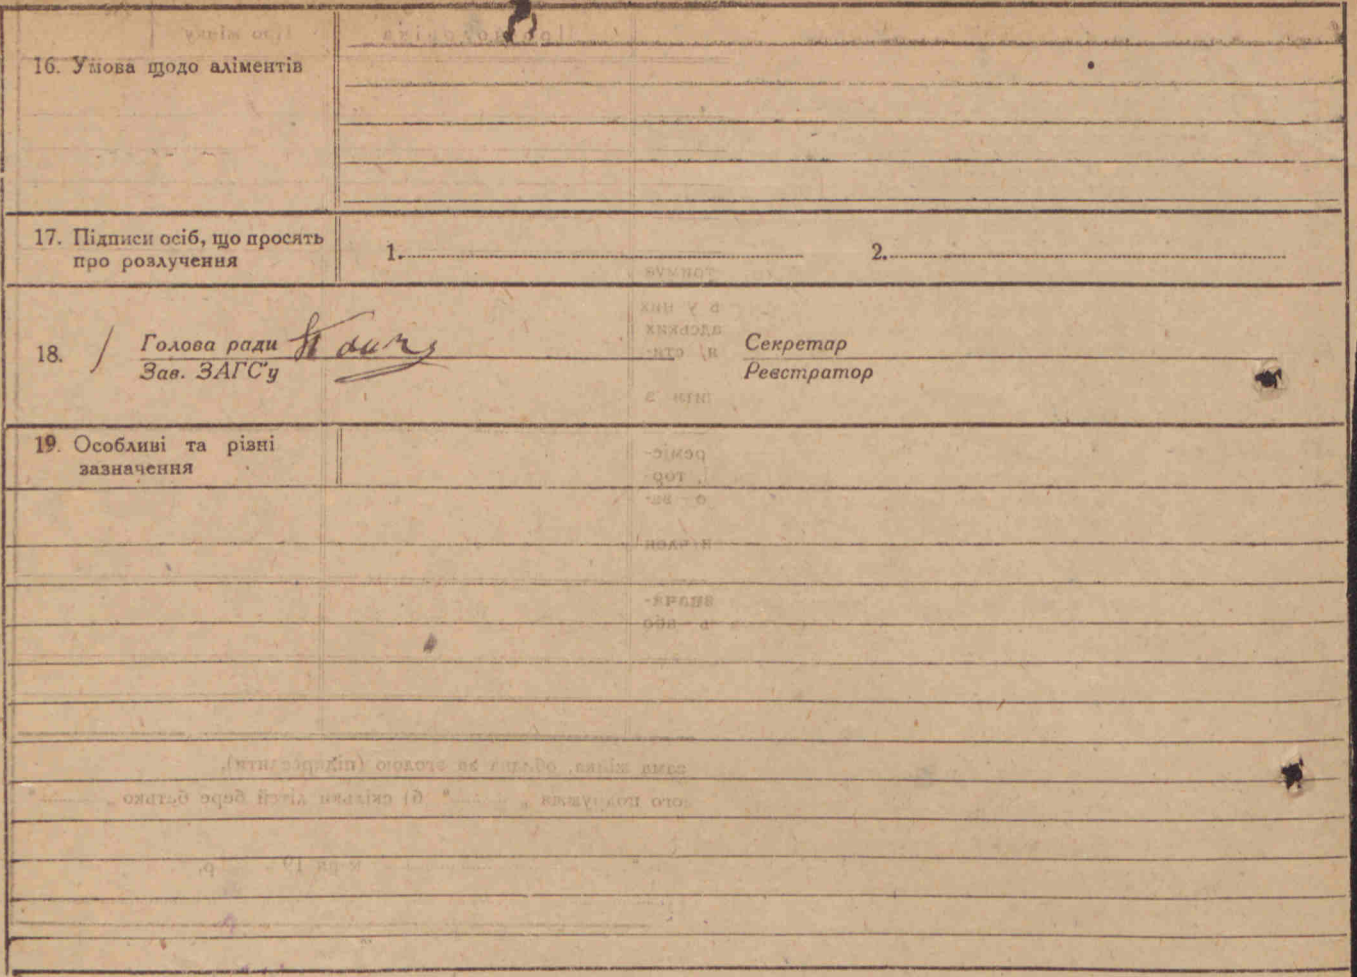 16. Умова щодо аліментів
17. Підписи осіб, що просять
про розлучення
1. 2.
18. Голова ради Секретар
Зав. ЗАГС'у Реєстратор
19. Особливі та різні
зазначення